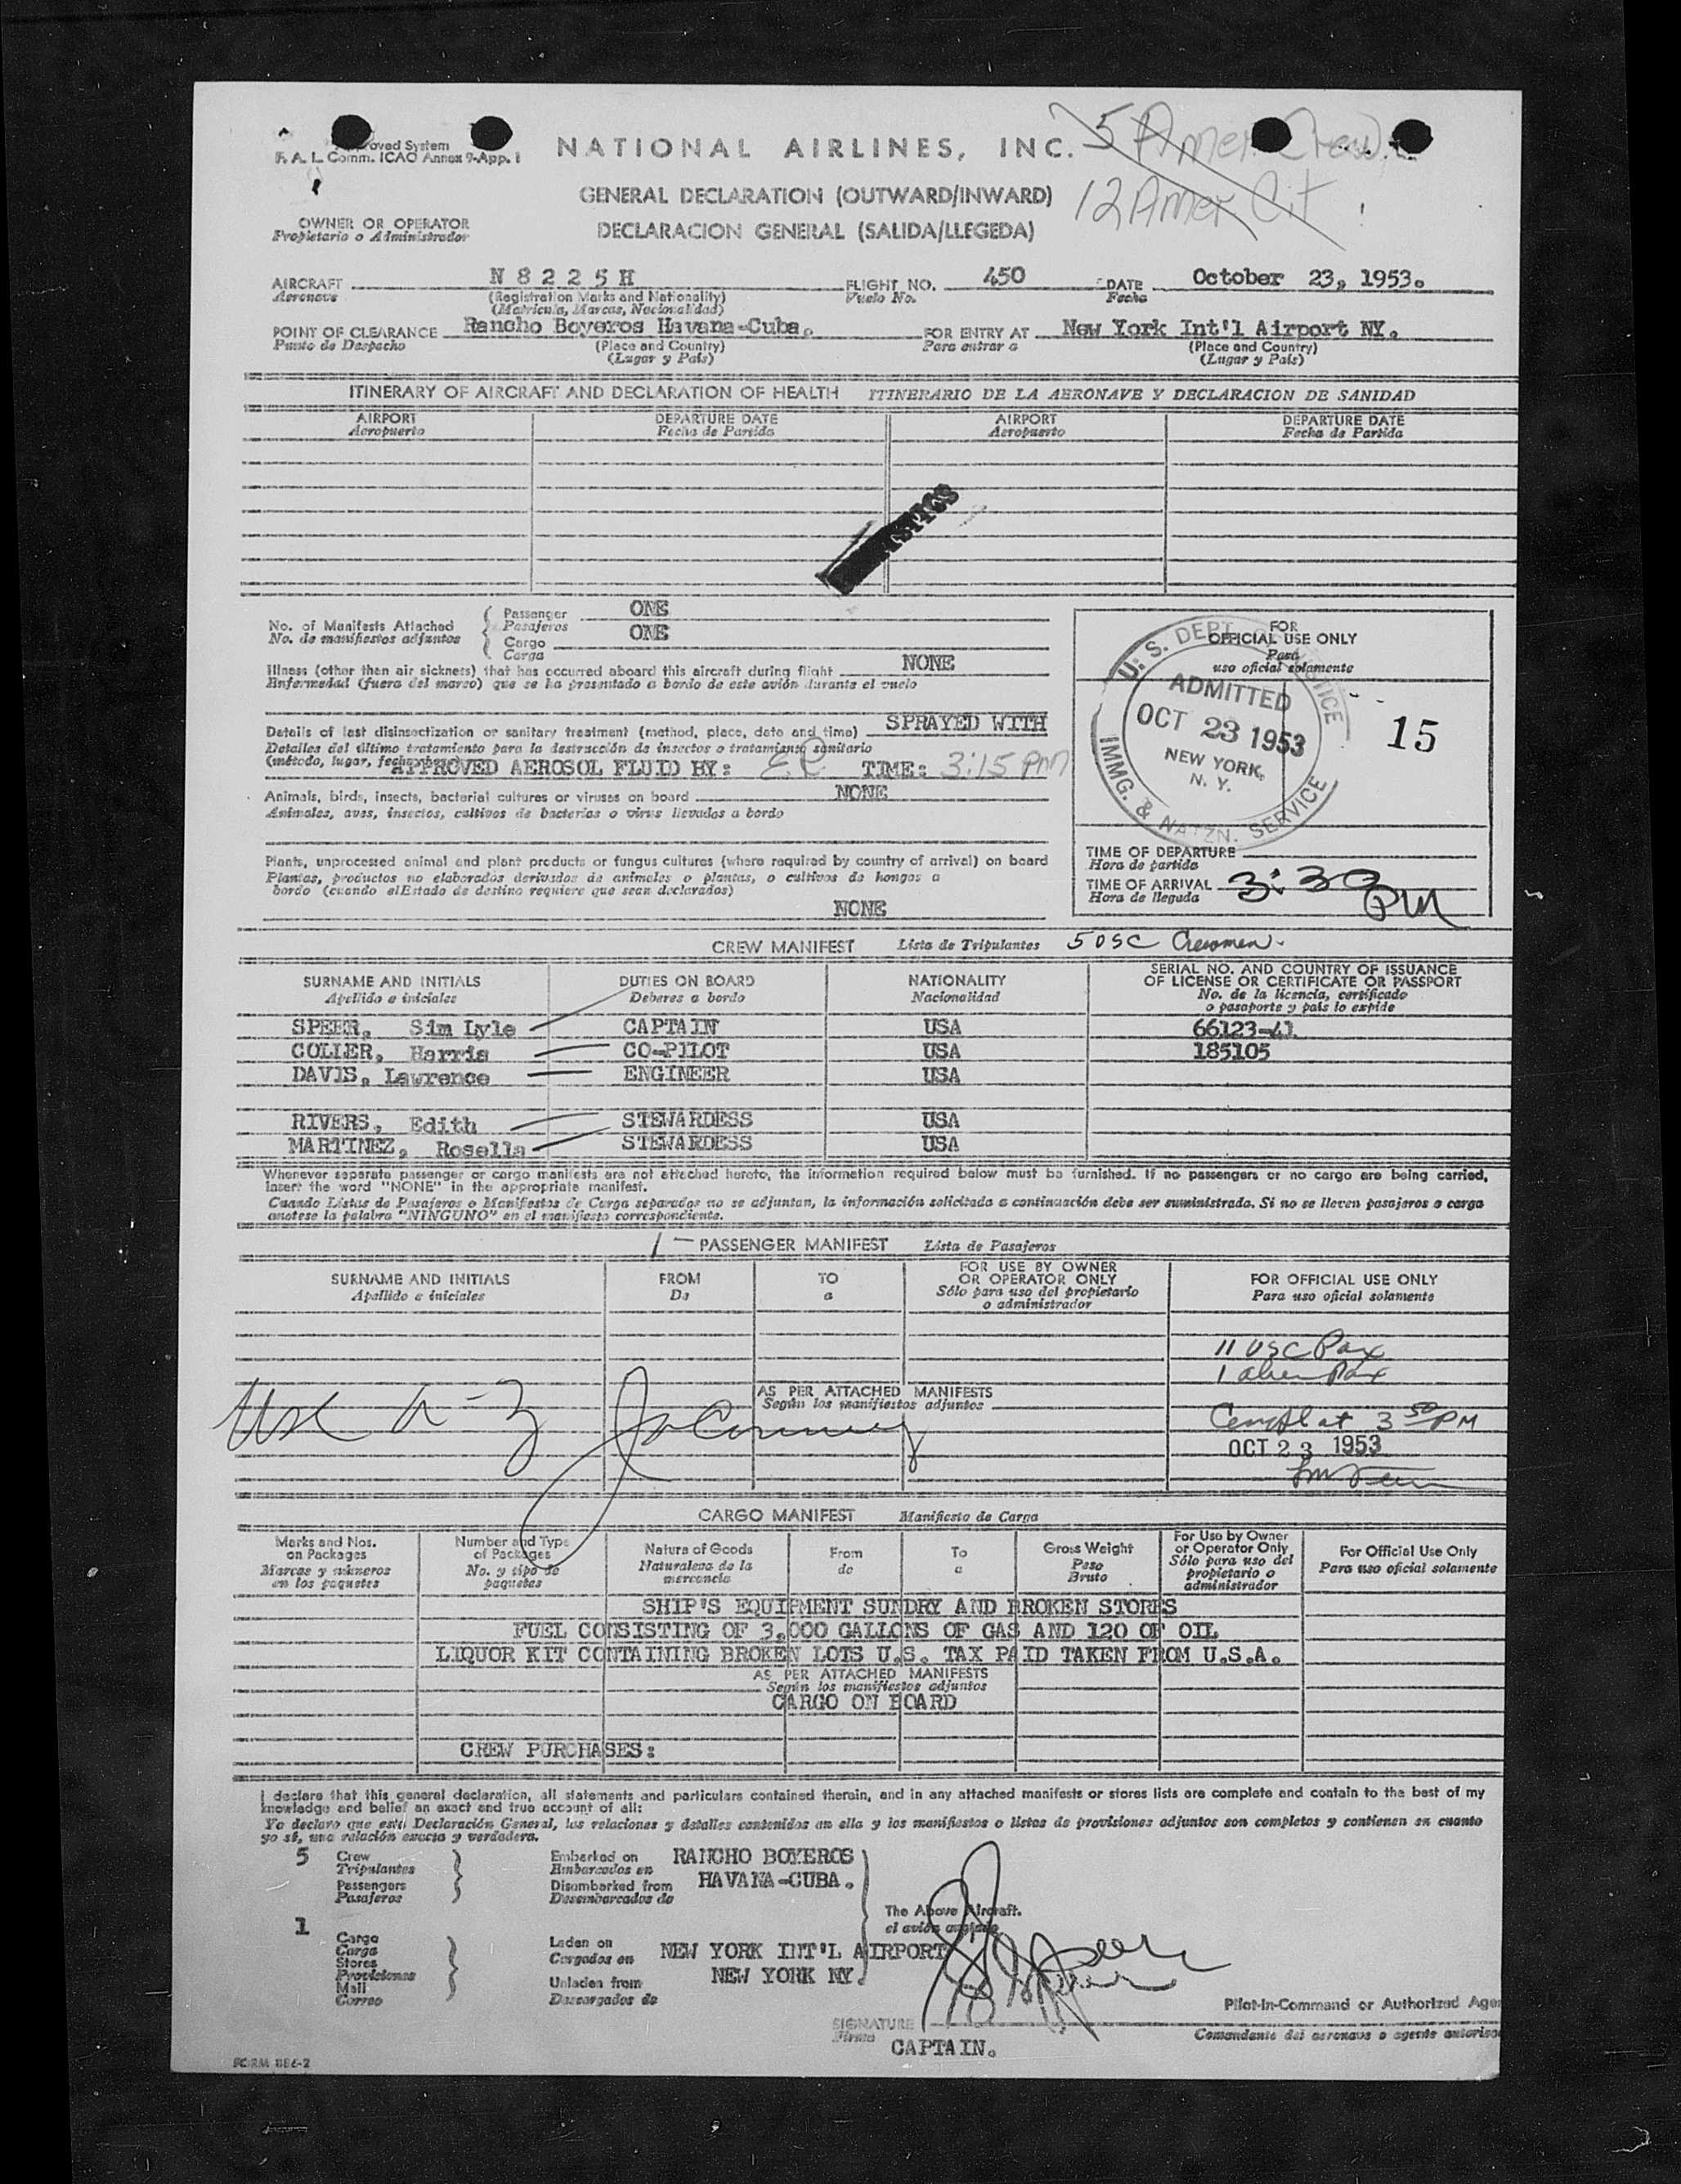 roved System
F. A. L. Comm. ICAO Annex 9-App. 1
NATIONAL AIRLINES, INC.
5 Amer Crew
12 Amer Cit
GENERAL DECLARATION (OUTWARD/INWARD)
DECLARACION GENERAL (SALIDA/LLEGEDA)
OWNER OR OPERATOR
Propietario o Administrador
AIRCRAFT N 8 2 2 5 H FLIGHT NO. 450 DATE October 23, 1953.
Aeronave (Registration Marks and Nationality) Vuelo No. Fecha
(Matricula, Marcas, Nacionalidad)
POINT OF CLEARANCE Rancho Boyeros Havana-Cuba. FOR ENTRY AT New York Int'l Airport NY.
Punto de Despacho (Place and Country) Para entrar a (Place and Country)
(Lugar y País) (Lugar y País)
ITINERARY OF AIRCRAFT AND DECLARATION OF HEALTH ITINERARIO DE LA AERONAVE Y DECLARACION DE SANIDAD
AIRPORT DEPARTURE DATE AIRPORT DEPARTURE DATE
Aeropuerto Fecha de Partida Aeropuerto Fecha de Partida
No. of Manifests Attached
No. de manifiestos adjuntos
Passenger ONE
Pasajeros
Cargo ONE
Carga
Illness (other than air sickness) that has occurred aboard this aircraft during flight NONE
Enfermedad (fuera del mareo) que se ha presentado a bordo de este avión durante el vuelo
Details of last disinsectization or sanitary treatment (method, place, date and time) SPRAYED WITH
Detalles del último tratamiento para la destrucción de insectos o tratamiento sanitario
(método, lugar,
APPROVED AEROSOL FLUID BY: E.R. TIME: 3:15 PM
Animals, birds, insects, bacterial cultures or viruses on board NONE
Animales, aves, insectos, cultivos de bacterias o virus llevados a bordo
Plants, unprocessed animal and plant products or fungus cultures (where required by country of arrival) on board
Plantas, productos no elaborados derivados de animales o plantas, o cultivos de hongos a
bordo (cuando el Estado de destino requiere que sean declarados)
NONE
FOR
OFFICIAL USE ONLY
Para
uso oficial solamente
U. S. DEPT. JUSTICE
ADMITTED
OCT 23 1953
NEW YORK,
N. Y.
IMMG. & NATZN. SERVICE
15
TIME OF DEPARTURE
Hora de partida
TIME OF ARRIVAL 3:30 PM
Hora de llegada
CREW MANIFEST Lista de Tripulantes 5 USC Crewmen.
SURNAME AND INITIALS DUTIES ON BOARD NATIONALITY SERIAL NO. AND COUNTRY OF ISSUANCE
OF LICENSE OR CERTIFICATE OR PASSPORT
Apellido e iniciales Deberes a bordo Nacionalidad No. de la licencia, certificado
o pasaporte y país lo expide
SPEER, Sim Lyle CAPTAIN USA 66123-41
COLLER, Harris CO-PILOT USA 185105
DAVIS, Lawrence ENGINEER USA
RIVERS, Edith STEWARDESS USA
MARTINEZ, Rosella STEWARDESS USA
Whenever separate passenger or cargo manifests are not attached hereto, the information required below must be furnished. If no passengers or no cargo are being carried,
insert the word "NONE" in the appropriate manifest.
Cuando Listas de Pasajeros o Manifiestos de Carga separados no se adjuntan, la información solicitada a continuación debe ser suministrada. Si no se lleven pasajeros o carga
anótese la palabra "NINGUNO" en el manifiesto correspondiente.
1 - PASSENGER MANIFEST Lista de Pasajeros
SURNAME AND INITIALS FROM TO FOR USE BY OWNER
OR OPERATOR ONLY FOR OFFICIAL USE ONLY
Apellido e iniciales De a Sólo para uso del propietario
o administrador Para uso oficial solamente
11 USC Pax
1 alien Pax
AS PER ATTACHED MANIFESTS
Según los manifiestos adjuntos
Compl at 3 50 PM
OCT 23 1953
CARGO MANIFEST Manifiesto de Carga
Marks and Nos.
on Packages
Marcas y números
en los paquetes
Number and Type
of Packages
No. y tipo de
paquetes
Nature of Goods
Naturaleza de la
mercancía
From
de
To
a
Gross Weight
Peso
Bruto
For Use by Owner
or Operator Only
Sólo para uso del
propietario o
administrador
For Official Use Only
Para uso oficial solamente
SHIP'S EQUIPMENT SUNDRY AND BROKEN STORES
FUEL CONSISTING OF 3,000 GALLONS OF GAS AND 120 OF OIL
LIQUOR KIT CONTAINING BROKEN LOTS U.S. TAX PAID TAKEN FROM U.S.A.
AS PER ATTACHED MANIFESTS
Según los manifiestos adjuntos
CARGO ON BOARD
CREW PURCHASES:
I declare that this general declaration, all statements and particulars contained therein, and in any attached manifests or stores lists are complete and contain to the best of my
knowledge and belief an exact and true account of all:
Yo declaro que esta Declaración General, las relaciones y detalles contenidos en ella y los manifiestos o listas de provisiones adjuntos son completos y contienen en cuanto
yo sé, una relación exacta y verdadera.
5 Crew
Tripulantes
Passengers
Pasajeros
Embarked on RANCHO BOYEROS
Embarcados en
Disembarked from HAVANA-CUBA.
Desembarcados de
The Above Aircraft.
el avión
1
Cargo
Carga
Stores
Provisiones
Mail
Correo
Laden on NEW YORK INT'L AIRPORT
Cargados en
Unladen from NEW YORK NY.
Descargados de
Pilot-in-Command or Authorized Age
SIGNATURE
Firma
Comandante del aeronave o agente autoriza
CAPTAIN.
FORM 886-2